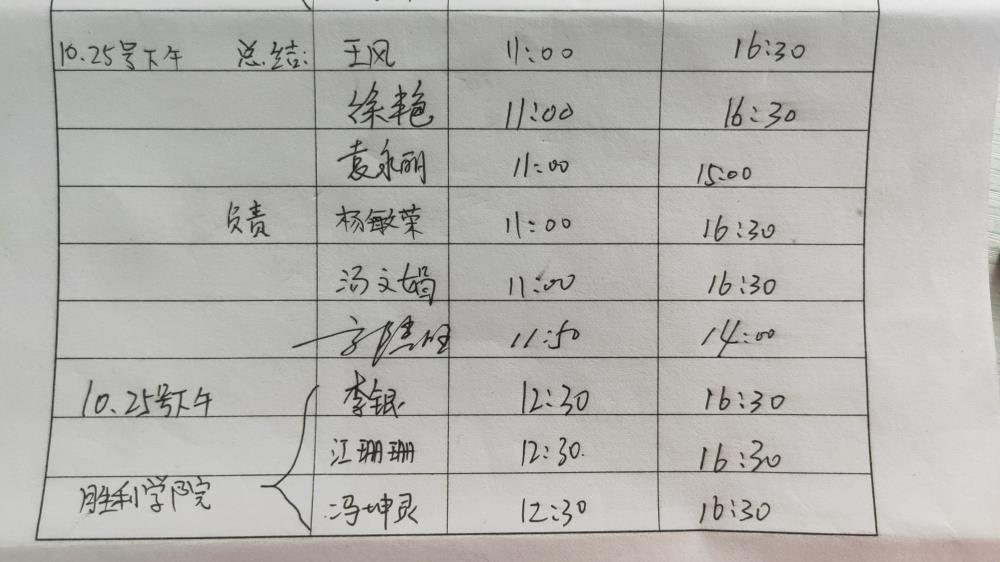 10.25号下午 总结: 王风 11:00 16:30
徐艳 11:00 16:30
袁永丽 11:00 15:00
负责 杨敏荣 11:00 16:30
汤文娟 11:00 16:30
11:50 14:00
10.25号下午 李银 12:30 16:30
江珊珊 12:30. 16:30
胜利学院 冯坤灵 12:30 16:30